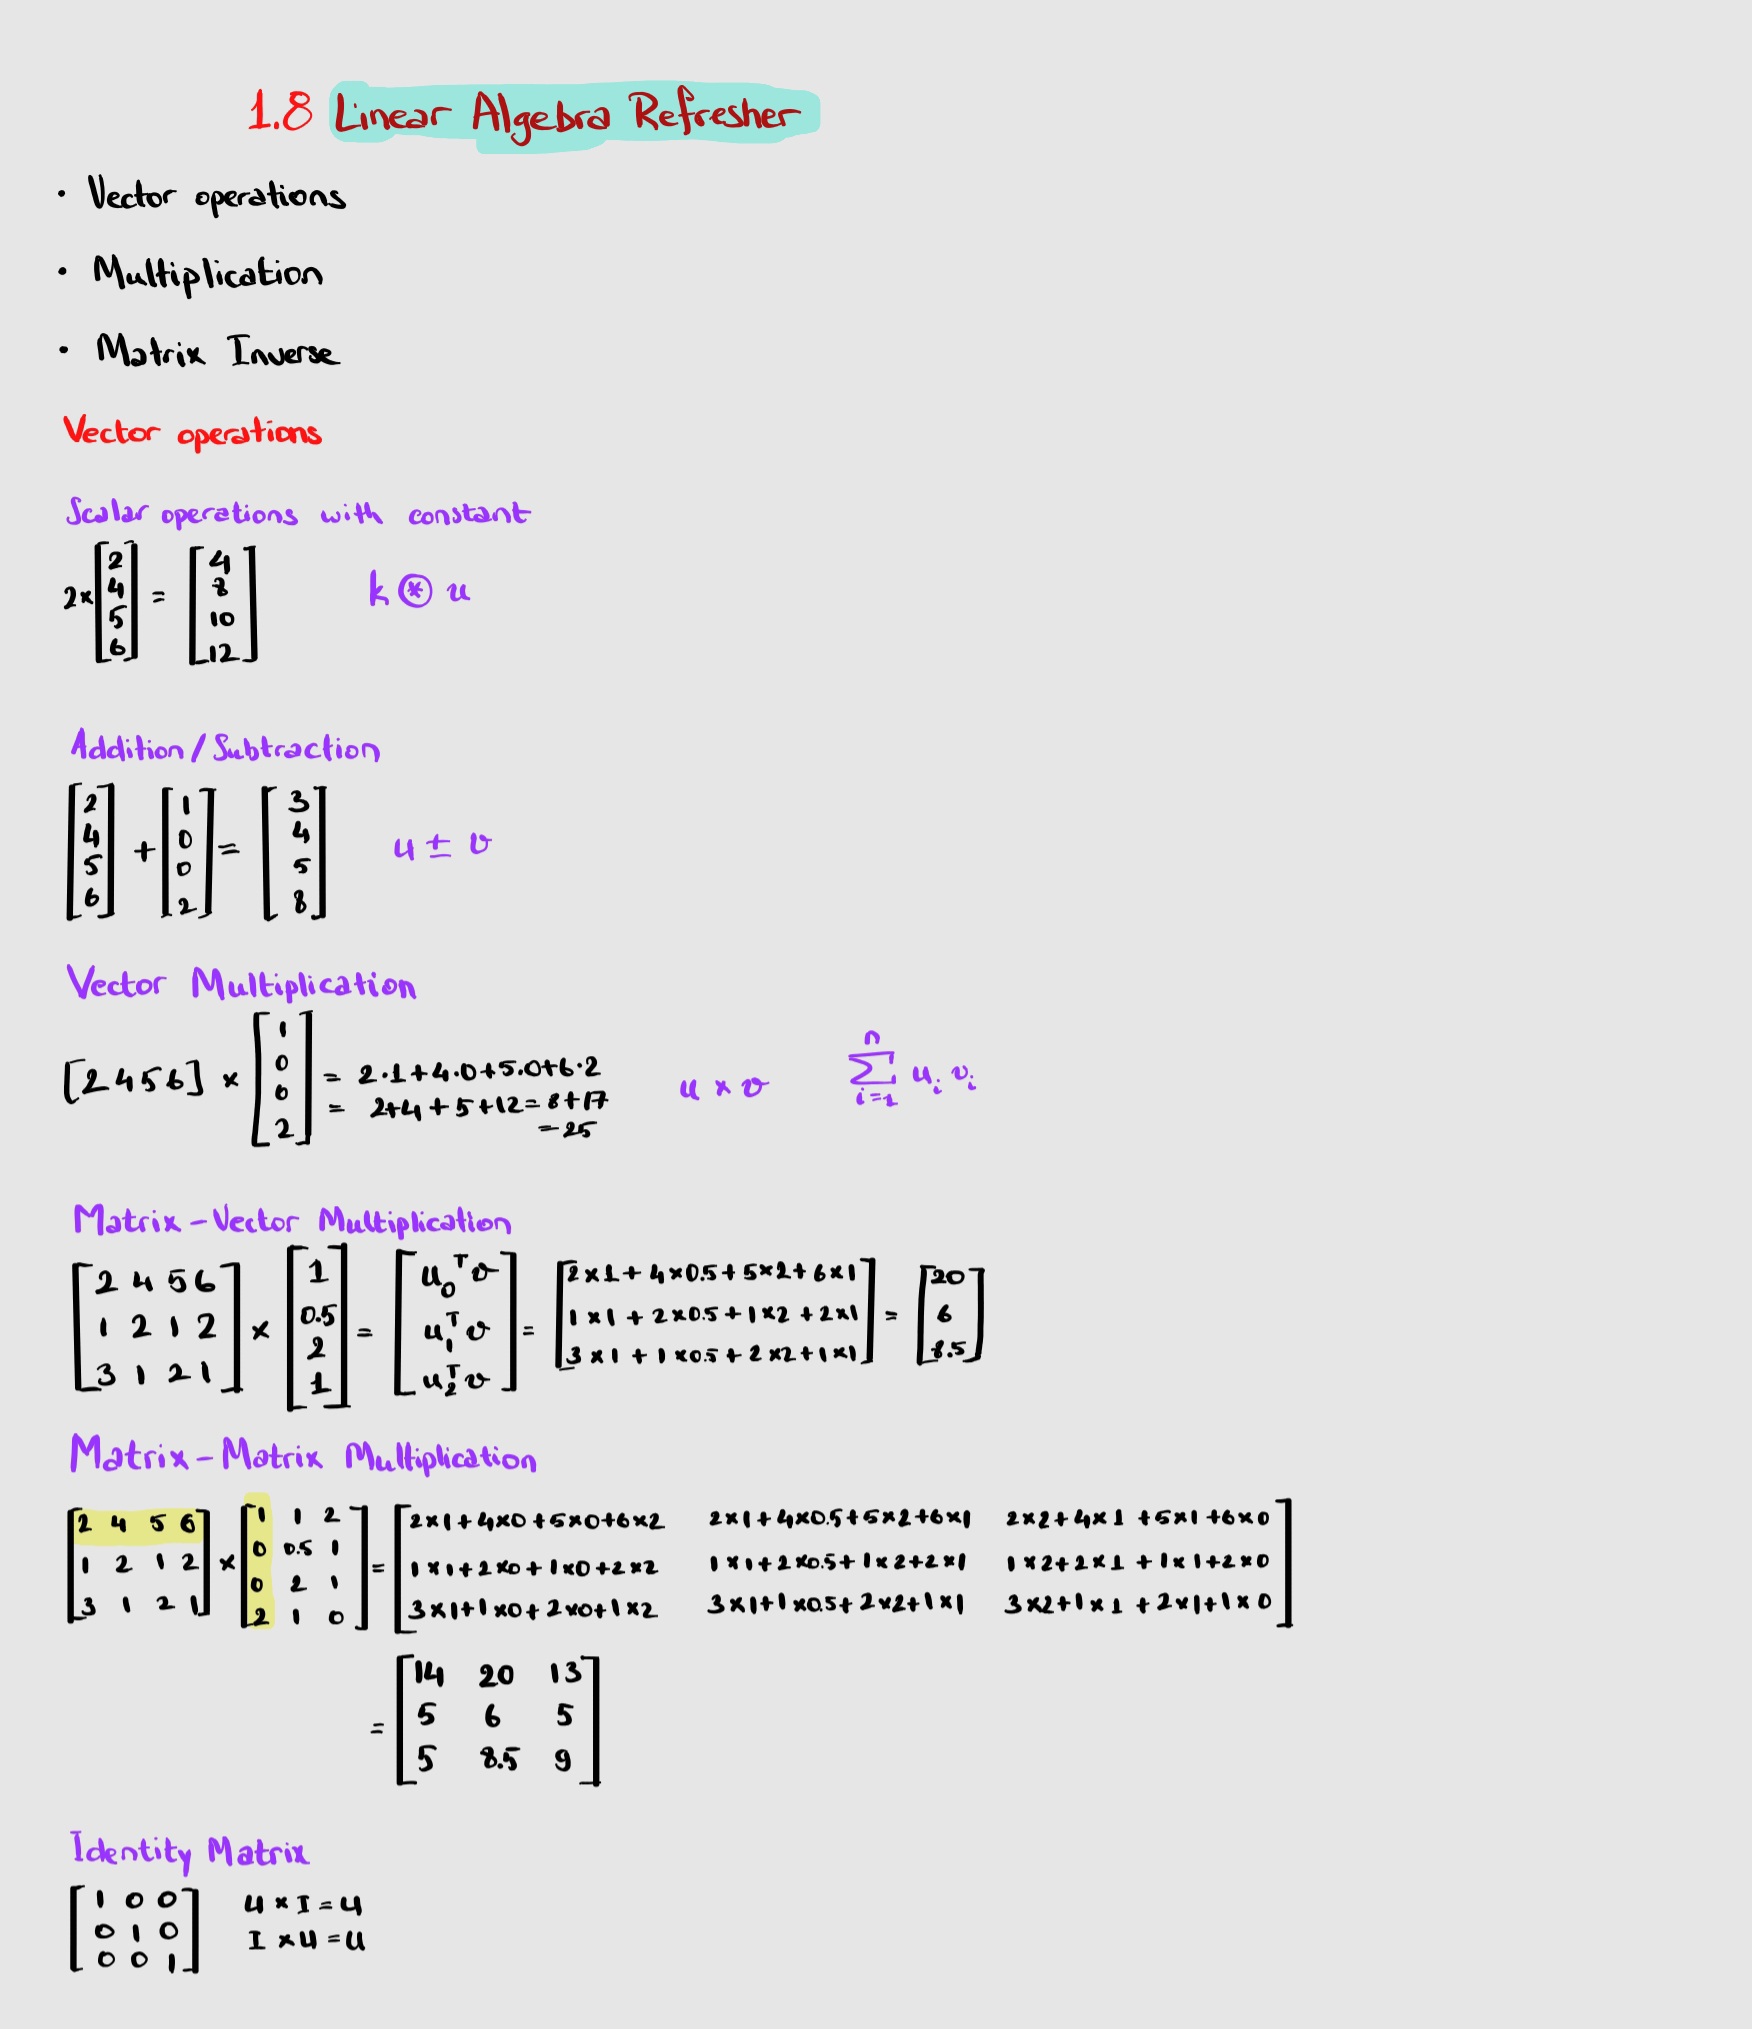 1.8 Linear Algebra Refresher
• Vector operations
• Multiplication
• Matrix Inverse
Vector operations
Scalar operations with constant
2× [2 4 5 6] = [4 8 10 12] k ⊛ u
Addition/Subtraction
[2 4 5 6] + [1 0 0 2] = [3 4 5 8] u ± v
Vector Multiplication
[2 4 5 6] × [1 0 0 2] = 2·1+4·0+5.0+6·2 u × v ∑ i=1 n u_i v_i
= 2+4+5+12=8+17
=25
Matrix-Vector Multiplication
[2 4 5 6] [1] [u_0^T v] [2×1+4×0.5+5×2+6×1] [20]
[1 2 1 2] × [0.5 2] = [u_1^T v] = [1×1+2×0.5+1×2+2×1] = [6]
[3 1 2 1] [1] [u_2^T v] [3×1+1×0.5+2×2+1×1] [8.5]
Matrix-Matrix Multiplication
[2 4 5 6] [1 1 2] [2×1+4×0+5×0+6×2 2×1+4×0.5+5×2+6×1 2×2+4×1+5×1+6×0]
[1 2 1 2] × [0 0.5 1] = [1×1+2×0+1×0+2×2 1×1+2×0.5+1×2+2×1 1×2+2×1+1×1+2×0]
[3 1 2 1] [0 2 1] [3×1+1×0+2×0+1×2 3×1+1×0.5+2×2+1×1 3×2+1×1+2×1+1×0]
[2 1 0]
[14 20 13]
= [5 6 5]
[5 8.5 9]
Identity Matrix
[1 0 0] u × I = u
[0 1 0] I × u = u
[0 0 1]